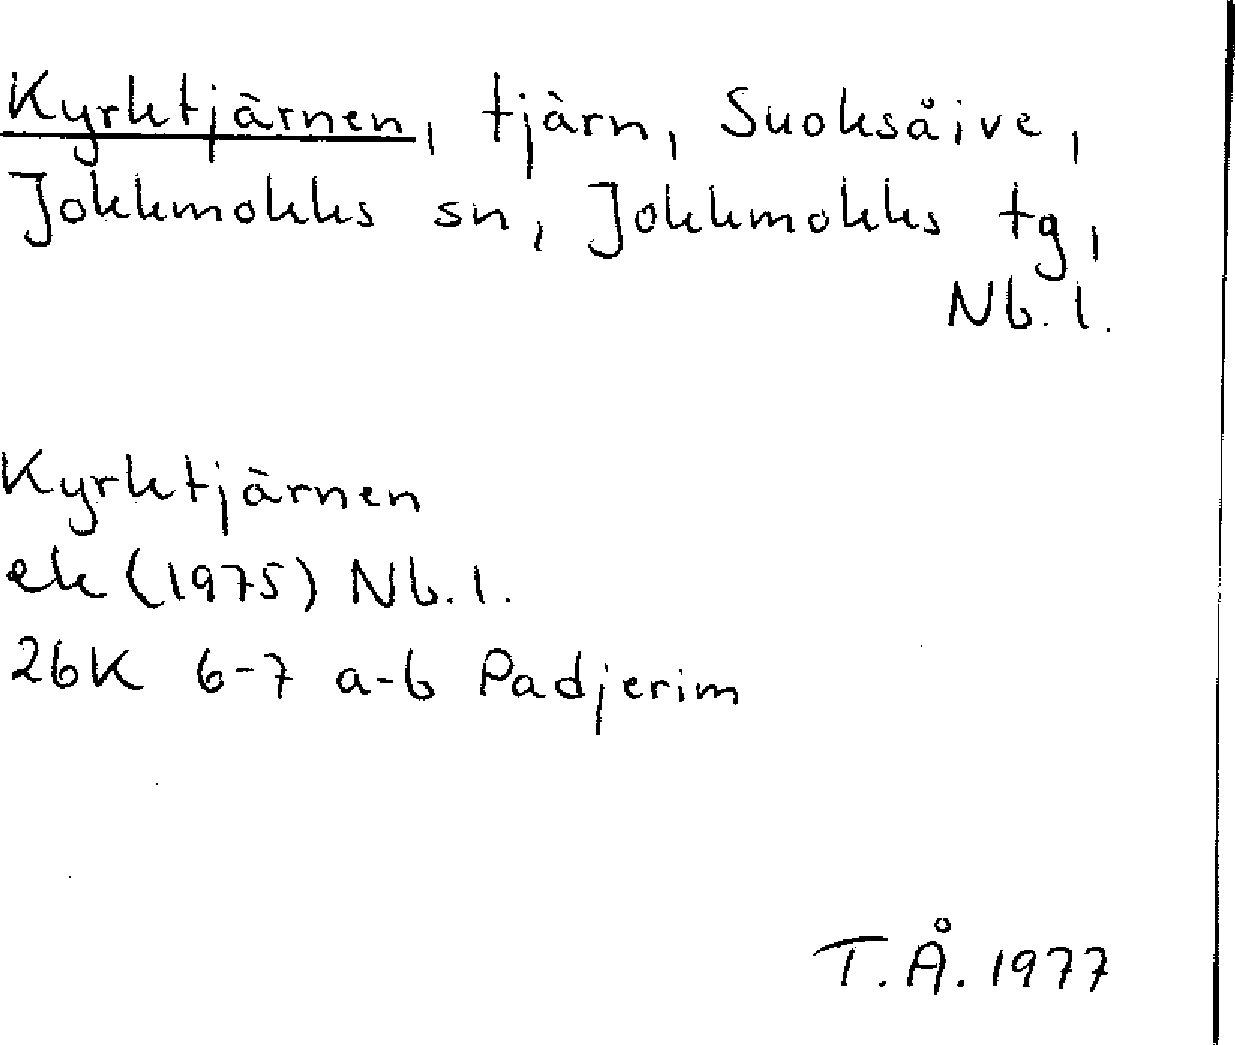 Kyrktjärnen, tjärn, Suoksåive,
Jokkmokks sn, Jokkmokks tg,
Nb. l.
Kyrktjärnen
ek (1975) Nb. l.
26K 6-7 a-b Padjerim
T. Å. 1977